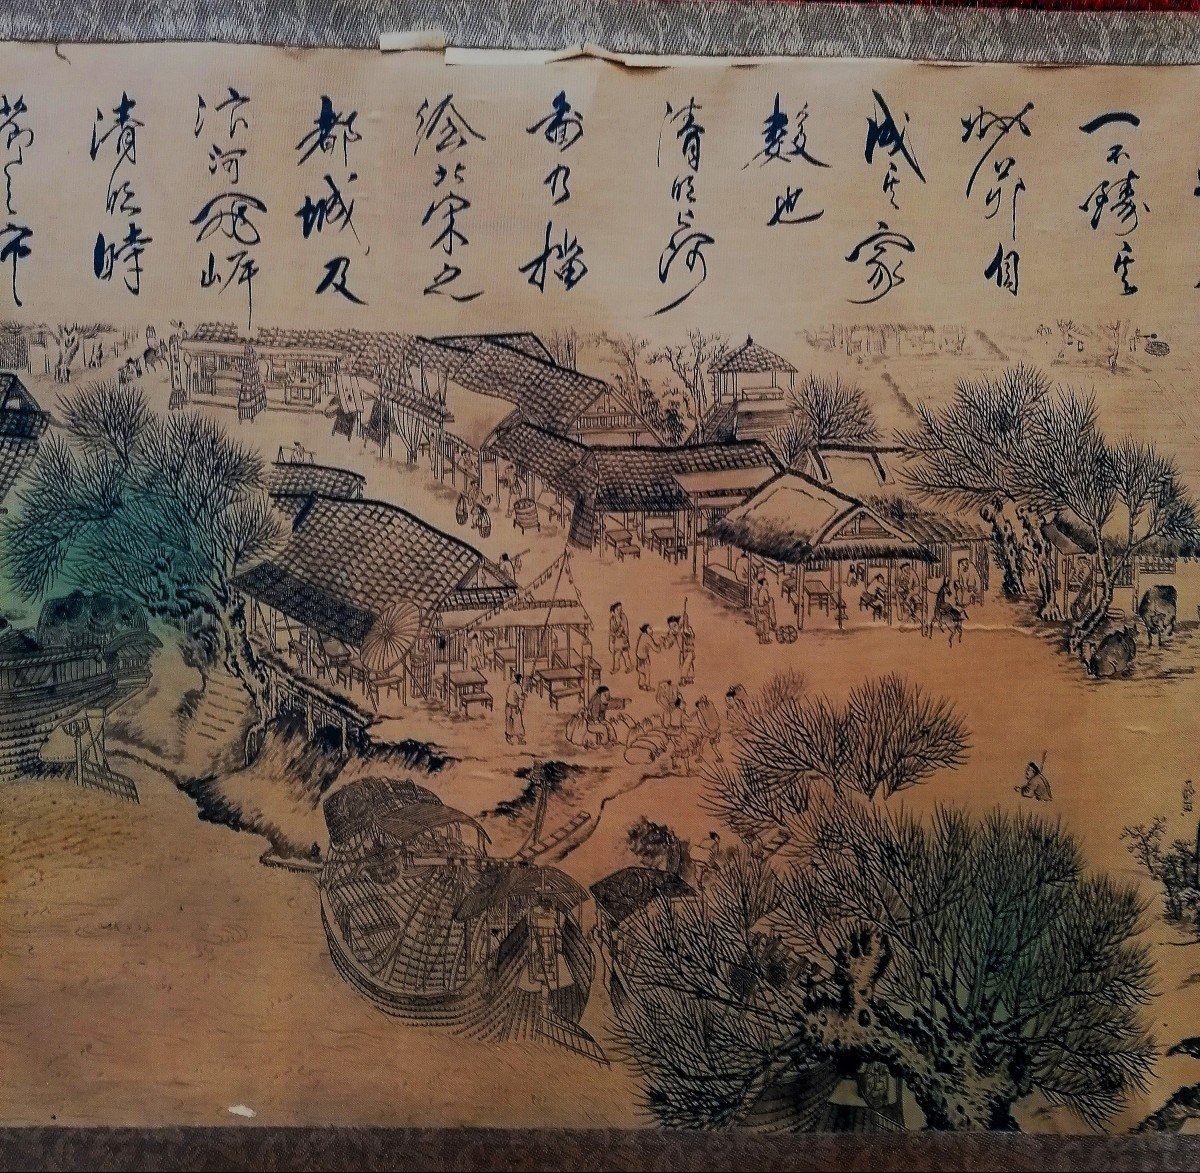 一不
自
成其家
數也
清明上河
圖乃描
繪北宋之
都城及
汴河兩岸
清明時
節之市